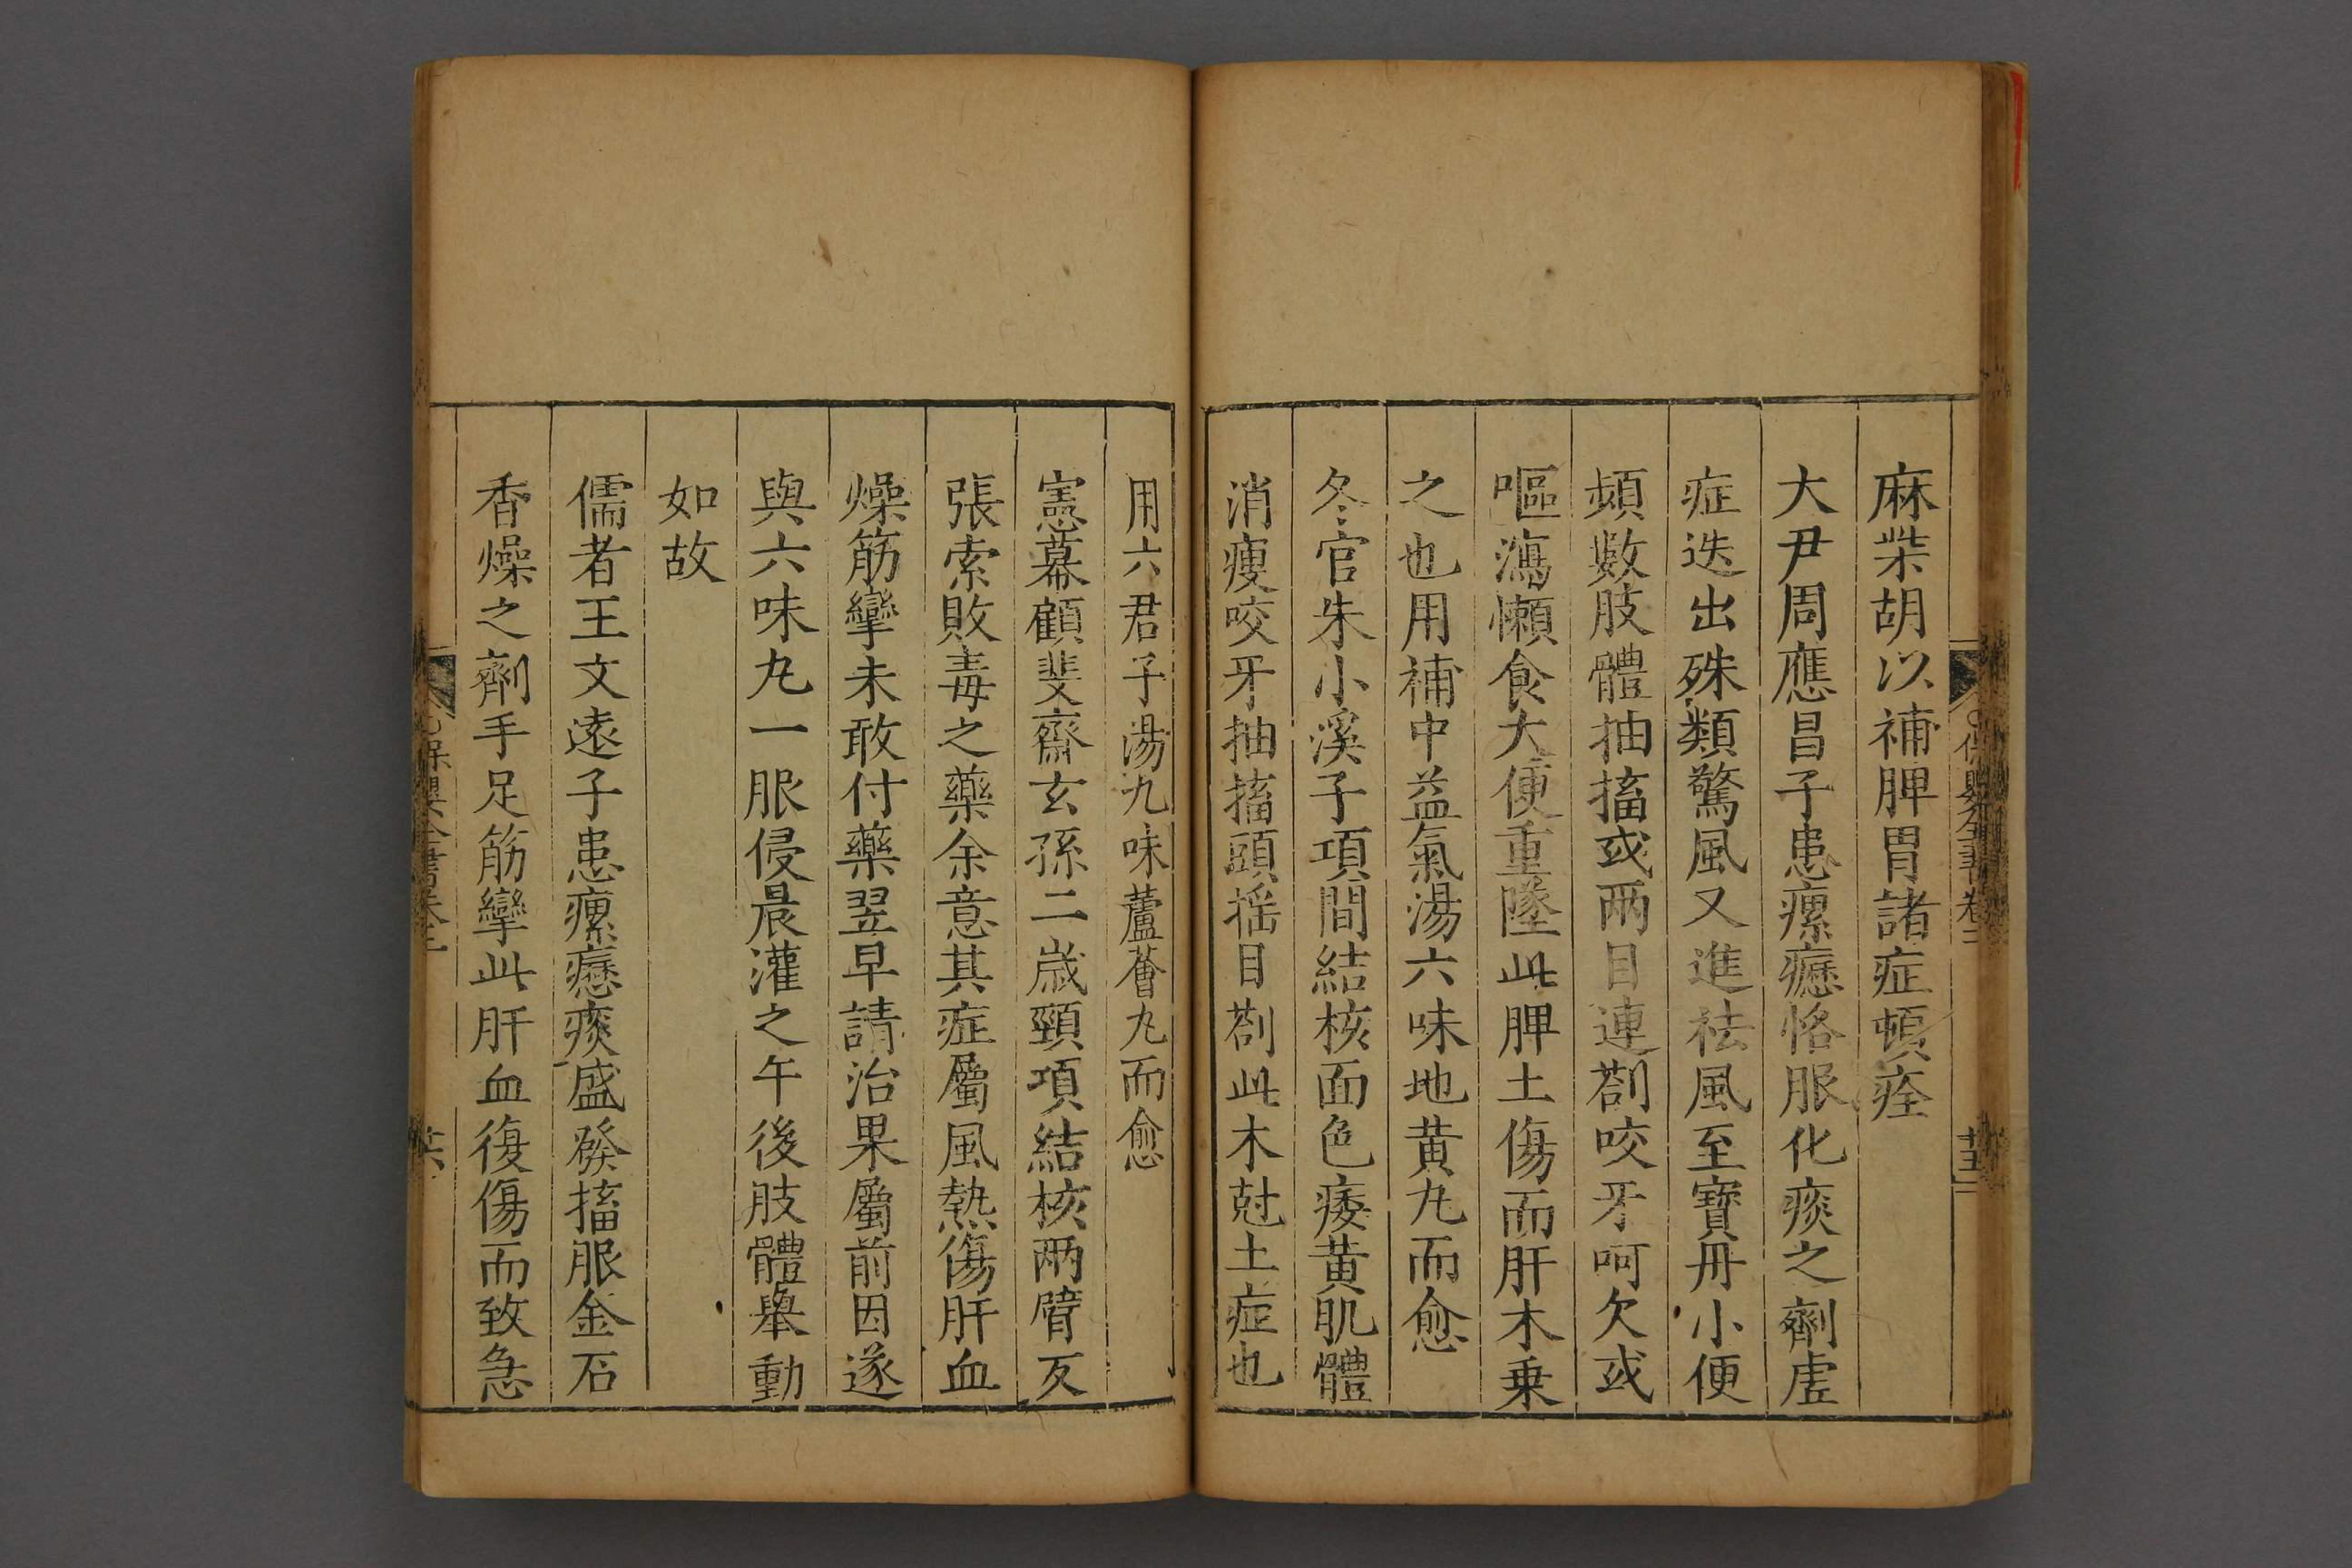 麻柴胡以補脾胃諸症頓痊
大尹周應昌子患瘰癧恪服化痰之劑虛
症迭出殊類驚風又進祛風至寶丹小便
頻數肢體抽搐或两目連劄咬牙呵欠或
嘔瀉懶食大便重墜此脾土傷而肝木乗
之也用補中益氣湯六味地黄丸而愈
冬官朱小溪子項間結核面色痿黄肌體
消瘦咬牙抽搐頭搖目劄此木尅土症也
用六君子湯九味蘆薈丸而愈
憲幕顧斐齋玄孫二歲頸項結核两臂反
張索敗毒之藥余意其症屬風熱傷肝血
燥筋攣未敢付藥翌早請治果屬前因遂
與六味丸一服侵晨灌之午後肢體舉動
如故
儒者王文遠子患瘰癧痰盛發搐服金石
香燥之劑手足筋攣此肝血復傷而致急